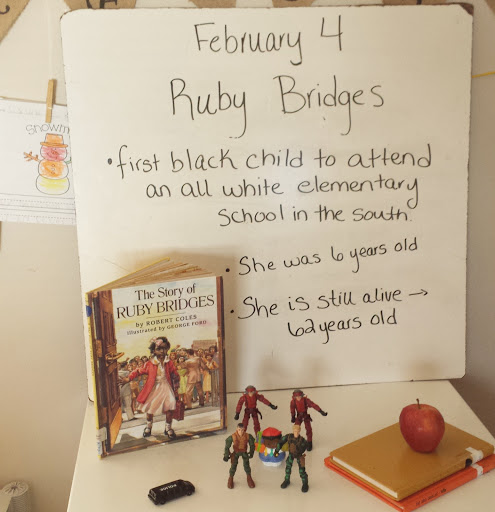 February 4
Ruby Bridges
• first black child to attend
an all white elementary
school in the south.
• She was 6 years old
• She is still alive →
62 years old
snowm
The Story of
RUBY BRIDGES
by ROBERT COLES
illustrated by GEORGE FORD
POLICE